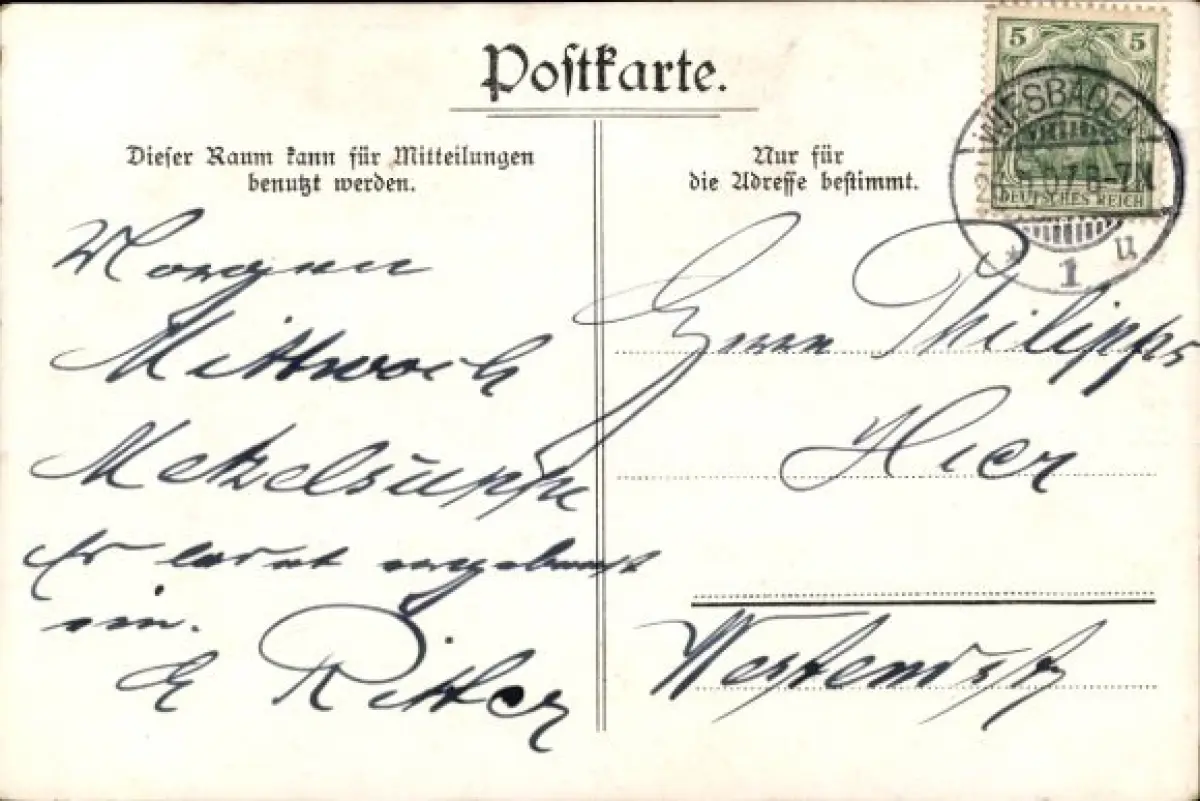 Postkarte.
5 5
WIESBADEN
07 6-7N
DEUTSCHES REICH
* 1 u
Dieser Raum kann für Mitteilungen
benutzt werden.
Nur für
die Adresse bestimmt.
Morgen
Mittwoch
Metzelsuppe
Er ladet ergebenst
ein.
E Ritter
Herrn Philipps
Hier
Westendstr